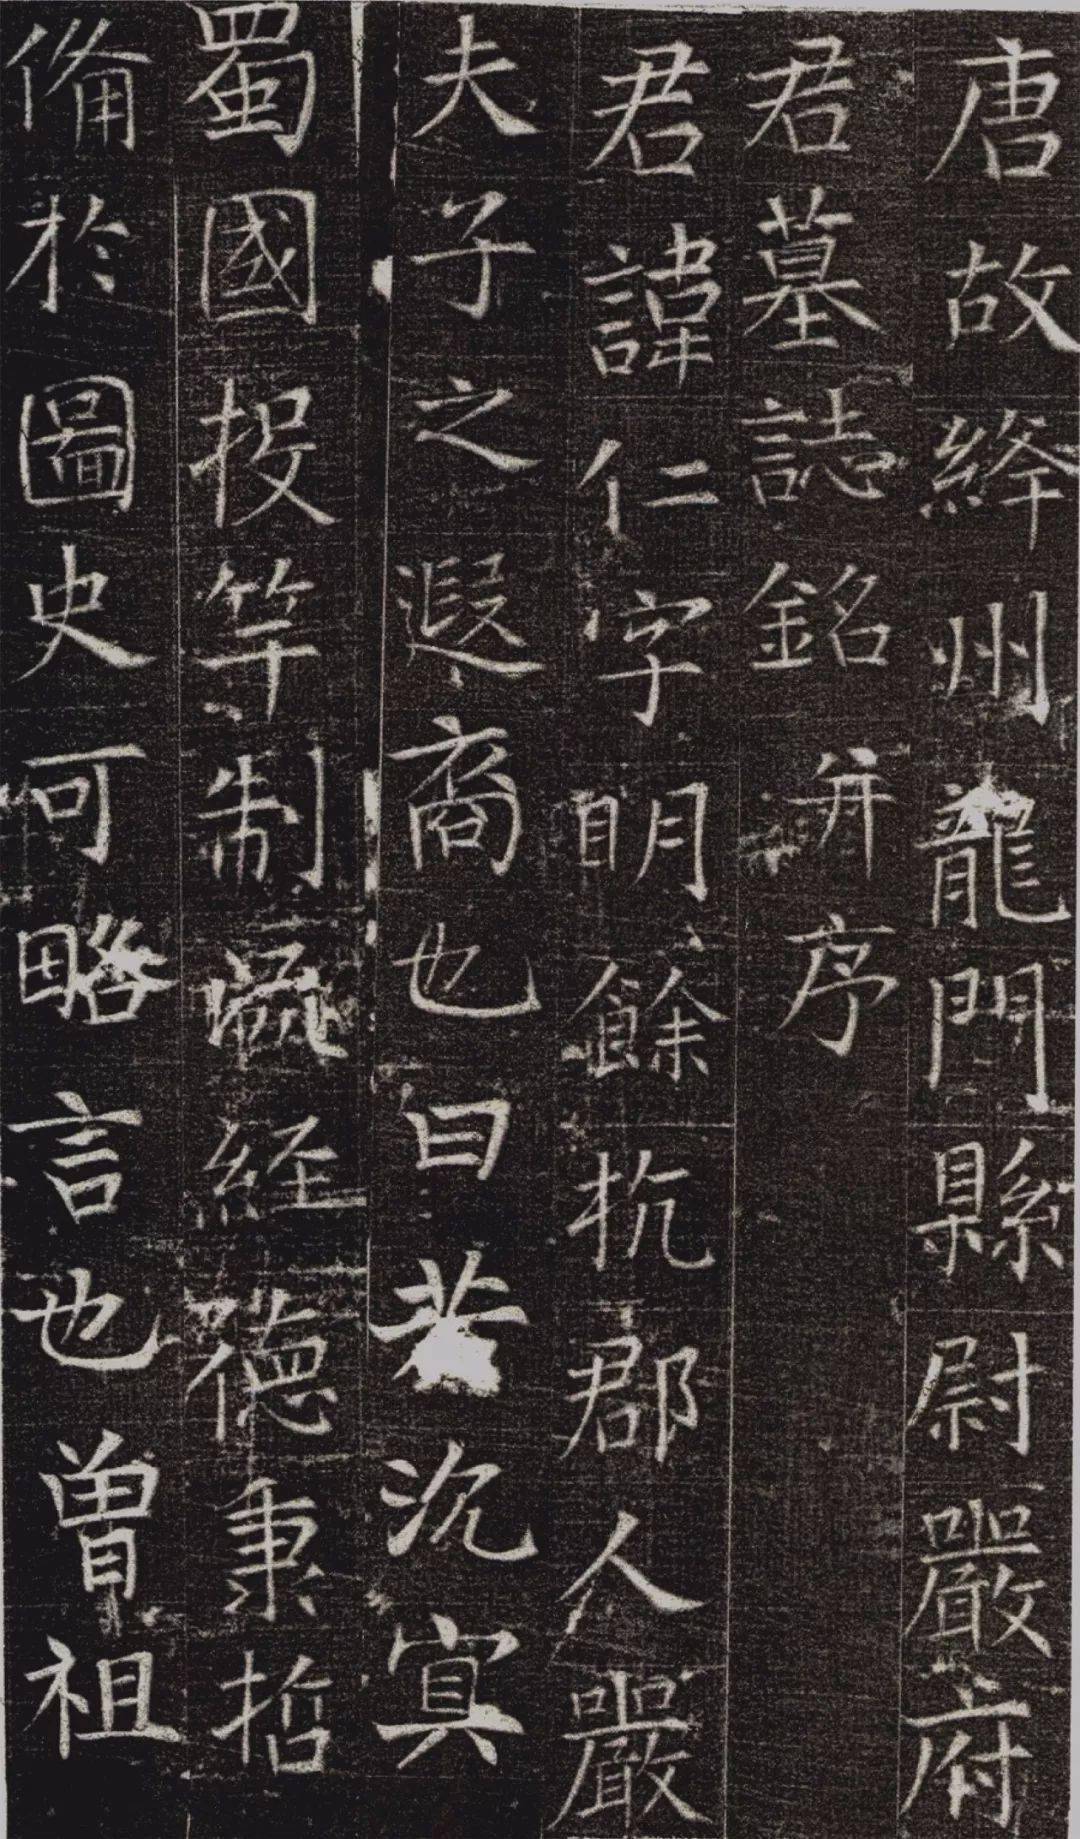 唐故絳州龍門縣尉嚴府
君墓誌銘并序
君諱仁字明餘杭郡人嚴
夫子之遐裔也曰若沉冥
蜀國投竿制巖経德秉哲
俻於圖史可略言也曽祖